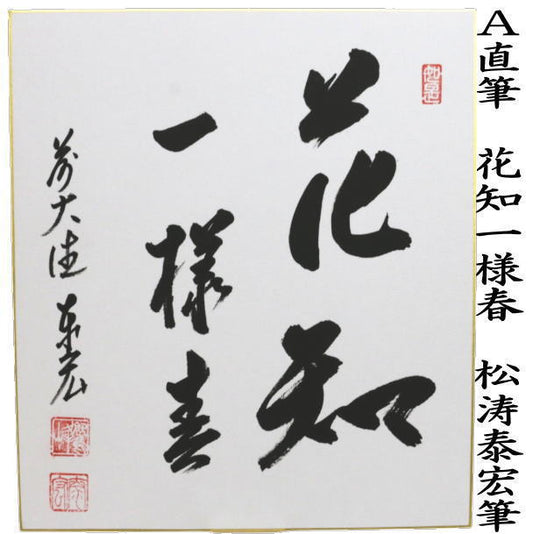 A直筆 花知一様春 松涛泰宏筆
花知
一様春
前大徳 泰宏